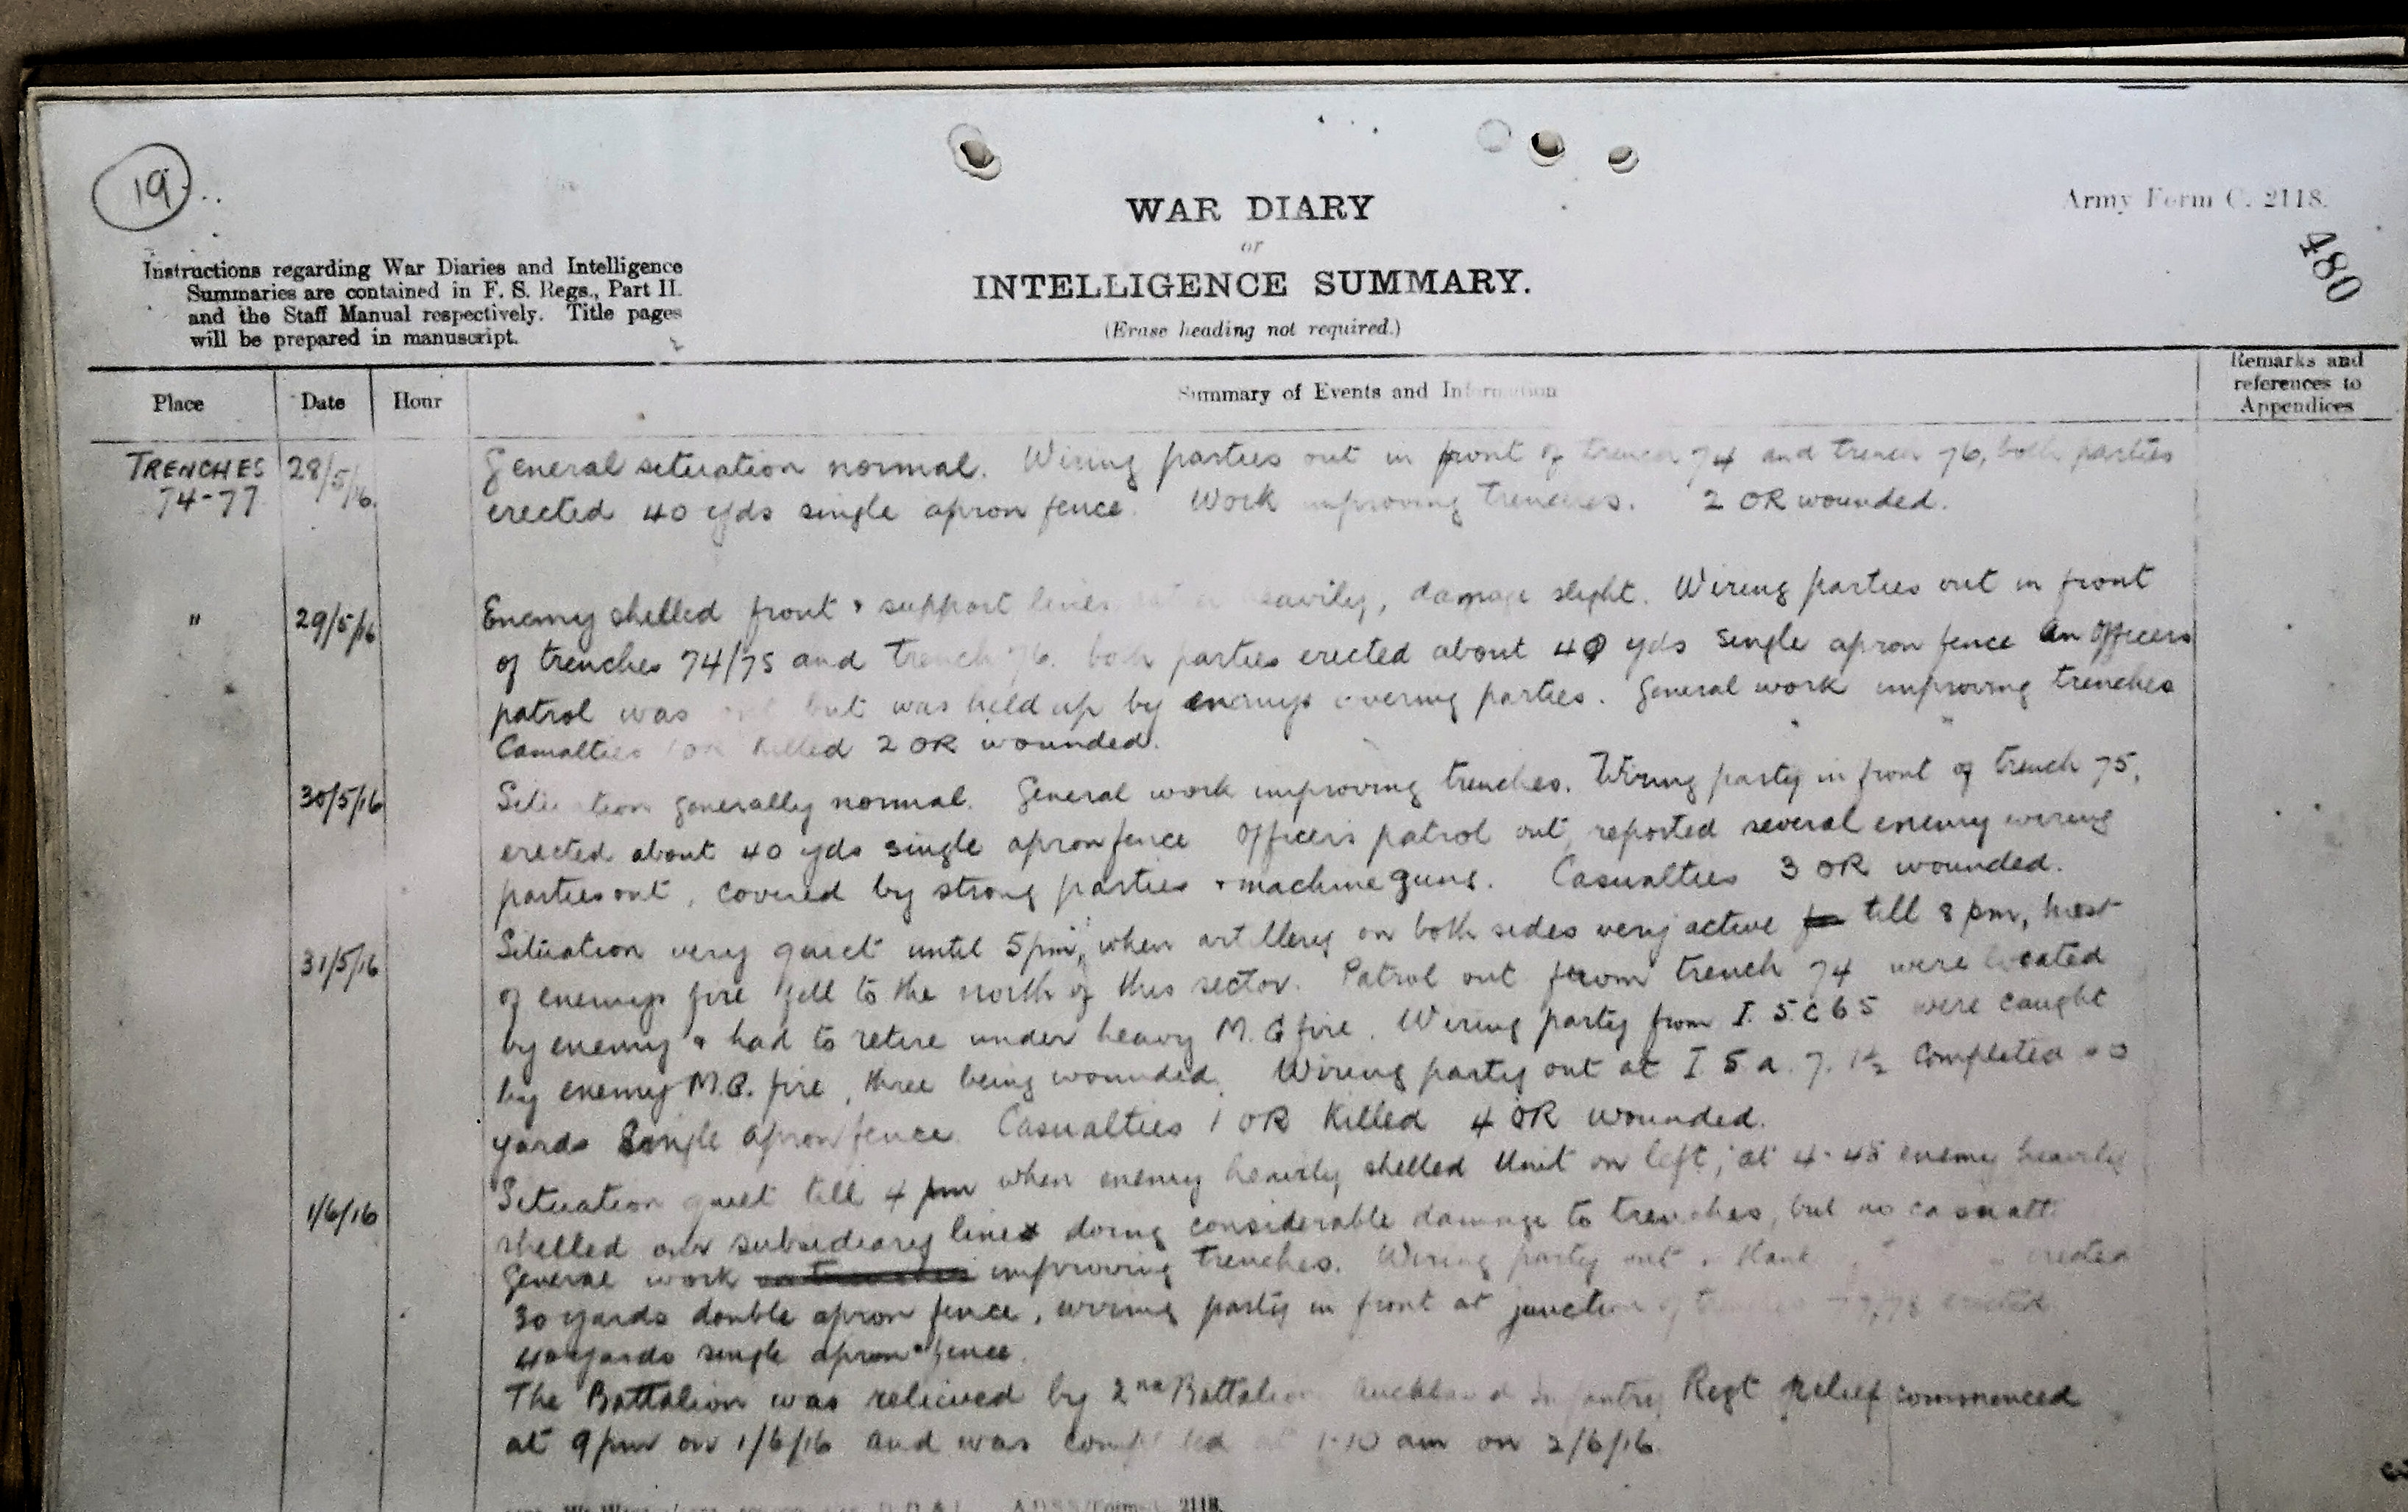 19
WAR DIARY
or
INTELLIGENCE SUMMARY.
(Erase heading not required.)
Army Form C. 2118.
480
Instructions regarding War Diaries and Intelligence
Summaries are contained in F. S. Regs., Part II.
and the Staff Manual respectively. Title pages
will be prepared in manuscript.
Place Date Hour Summary of Events and Information Remarks and references to Appendices
TRENCHES 74-77 28/5/16. General situation normal. Wiring parties out in front of trench 74 and trench 76, both parties
erected 40 yds single apron fence. Work improving trenches. 2 OR wounded.
" 29/5/16 Enemy shelled front & support lines heavily, damage slight. Wiring parties out in front
of trenches 74/75 and trench 76. both parties erected about 40 yds single apron fence An Officers
patrol was out but was held up by enemys covering parties. General work improving trenches
Casualties 1 OR Killed 2 OR wounded.
30/5/16 Situation generally normal. General work improving trenches. Wiring party in front of trench 75,
erected about 40 yds single apron fence Officers patrol out, reported several enemy wiring
parties out, covered by strong parties & machine guns. Casualties 3 OR wounded.
31/5/16 Situation very quiet until 5 pm, when artillery on both sides very active till 8 pm, most
of enemys fire fell to the north of this sector. Patrol out from trench 74 were located
by enemy & had to retire under heavy M.G fire. Wiring party from I. 5. C 6 5 were caught
by enemy M.G. fire, three being wounded. Wiring party out at I 5 a. 7. 1½ Completed
yards Single apron fence. Casualties 1 OR Killed 4 OR wounded.
1/6/16 Situation quiet till 4 pm when enemy heavily shelled Unit on left; at 4-45 enemy heavily
shelled our subsidiary line doing considerable damage to trenches, but no casualt
General work improving trenches. Wiring party out erected
30 yards double apron fence, wiring party in front at junction of trenches erected
40 yards single apron fence.
The Battalion was relieved by 2nd Battalion Auckland Infantry Regt Relief commenced
at 9 pm on 1/6/16 and was completed at 1-10 am on 2/6/16.
2118.